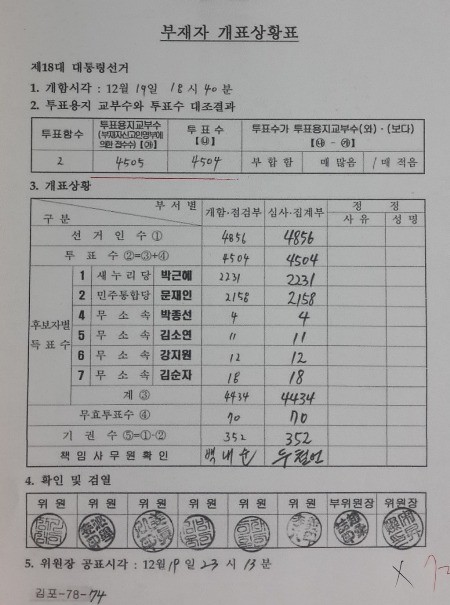 부재자 개표상황표
제18대 대통령선거
1. 개함시각 : 12월 19일 18시 40분
2. 투표용지 교부수와 투표수 대조결과
투표함수 투표용지교부수 (부재자신고인명부에 의한 접수수) 【㉮】 투 표 수 【㉯】 투표수가 투표용지교부수(와)·(보다) 【㉯ - ㉮】
2 4505 4504 부 합 함 매 많음 1매 적음
3. 개표상황
구 분 부 서 별 개함·점검부 심사·집계부 정 정
사 유 성 명
선 거 인 수 ① 4856 4856
투 표 수 ②=③+④ 4504 4504
후보자별 득 표 수
1 새누리당 박근혜 2231 2231
2 민주통합당 문재인 2158 2158
4 무 소 속 박종선 4 4
5 무 소 속 김소연 11 11
6 무 소 속 강지원 12 12
7 무 소 속 김순자 18 18
계 ③ 4434 4434
무효투표수 ④ 70 70
기 권 수 ⑤=①-② 352 352
책임사무원확인
4. 확인 및 검열
위 원 위 원 위 원 위 원 위 원 위 원 부위원장 위원장
5. 위원장 공표시각 : 12월 19일 23시 13분
김포-78-74